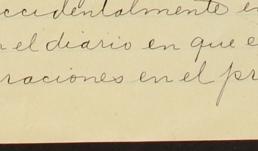 accidentalmente e
n el diario en que e
raciones en el pr